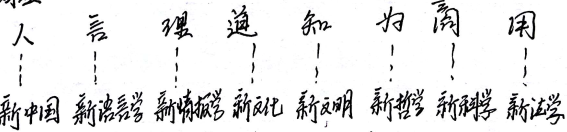 人 言 理 道 知 为 商 用
新中国 新语言学 新情报学 新文化 新文明 新哲学 新科学 新法学